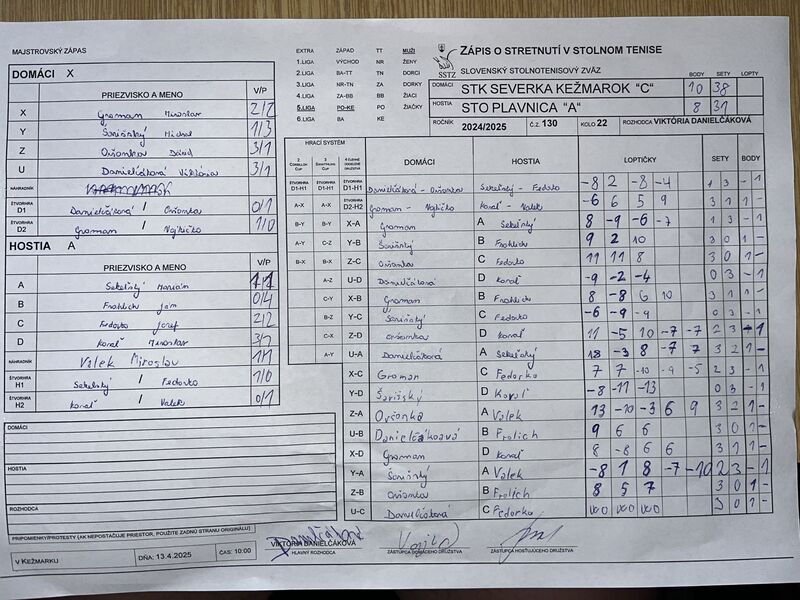 MAJSTROVSKÝ ZÁPAS
DOMÁCI X
PRIEZVISKO A MENO V/P
X Groman Miroslav 2/2
Y Šarišský Michal 1/3
Z Orčonka Dávid 3/1
U Danielčáková Viktória 3/1
NÁHRADNÍK
ŠTVORHRA D1 Danielčáková / Orčonka 0/1
ŠTVORHRA D2 Groman / Vojtičko 1/0
HOSTIA A
PRIEZVISKO A MENO V/P
A Sekelský Marián 1/1
B Frohlich Ján 0/4
C Fedorko Jozef 2/2
D Kovaľ Miroslav 3/1
NÁHRADNÍK Valek Miroslav 1/1
ŠTVORHRA H1 Sekelský / Fedorko 1/0
ŠTVORHRA H2 Kovaľ / Valek 0/1
DOMÁCI
HOSTIA
ROZHODCA
PRIPOMIENKY/PROTESTY (AK NEPOSTAČUJE PRIESTOR, POUŽITE ZADNÚ STRANU ORIGINÁLU)
V KEŽMARKU DŇA: 13.4.2025 ČAS: 10:00
EXTRA ZÁPAD TT MUŽI
1.LIGA VÝCHOD NR ŽENY
2.LIGA BA-TT TN DORCI
3.LIGA NR-TN ZA DORKY
4.LIGA ZA-BB BB ŽIACI
5.LIGA PO-KE PO ŽIAČKY
6.LIGA BA KE
SSTZ
ZÁPIS O STRETNUTÍ V STOLNOM TENISE
SLOVENSKÝ STOLNOTENISOVÝ ZVÄZ
BODY SETY LOPTY
DOMÁCI STK SEVERKA KEŽMAROK "C" 10 38
HOSTIA STO PLAVNICA "A" 8 31
ROČNÍK 2024/2025 Č.Z. 130 KOLO 22 ROZHODCA VIKTÓRIA DANIELČÁKOVÁ
HRACÍ SYSTÉM
DOMÁCI HOSTIA LOPTIČKY SETY BODY
ŠTVORHRA D1-H1 ŠTVORHRA D1-H1 ŠTVORHRA D1-H1 Danielčáková - Orčonka Sekelský - Fedorko -8 2 -8 -4 1 3 - 1
A-X A-X ŠTVORHRA D2-H2 Groman - Vojtičko Kovaľ - Valek -6 6 5 9 3 1 1 -
B-Y B-Y X-A Groman A Sekelský 8 -9 -6 -7 1 3 - 1
A-Y C-Z Y-B Šarišský B Frohlich 9 2 10 3 0 1 -
B-X B-X Z-C Orčonka C Fedorko 11 11 8 3 0 1 -
A-Z U-D Danielčáková D Kovaľ -9 -2 -4 0 3 - 1
C-Y X-B Groman B Frohlich 8 -8 6 10 3 1 1 -
B-Z Y-C Šarišský C Fedorko -6 -9 -9 0 3 - 1
C-X Z-D Orčonka D Kovaľ 11 -5 10 -7 -7 2 3 - 1
A-Y U-A Danielčáková A Sekelský 18 -3 8 -7 7 3 2 1 -
X-C Groman C Fedorko 7 7 -10 -9 -5 2 3 - 1
Y-D Šarišský D Kovaľ -8 -11 -13 0 3 - 1
Z-A Orčonka A Valek 13 -10 -3 6 9 3 2 1 -
U-B Danielčáková B Frolich 9 6 6 3 0 1 -
X-D Groman D Kovaľ 8 -8 6 6 3 1 1 -
Y-A Šarišský A Valek -8 1 8 -7 -10 2 3 - 1
Z-B Orčonka B Frolich 8 5 7 3 0 1 -
U-C Danielčáková C Fedorko wo wo wo 3 0 1 -
VIKTÓRIA DANIELČÁKOVÁ
HLAVNÝ ROZHODCA
ZÁSTUPCA DOMÁCEHO DRUŽSTVA
ZÁSTUPCA HOSŤUJÚCEHO DRUŽSTVA